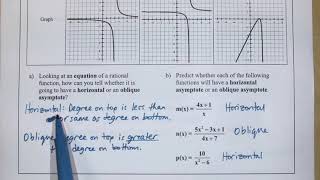 Graph
a) Looking at an equation of a rational
function, how can you tell whether it is
going to have a horizontal or an oblique
asymptote?
Horizontal: Degree on top is less than
or same as degree on bottom.
Oblique: degree on top is greater
degree on bottom.
b) Predict whether each of the following
will have a horizontal
asymptote or an oblique
asymptote.
m(x) = 4x+1 / x Horizontal
n(x) = 5x²-3x+1 / 4x+7 Oblique
p(x) = 10 / x²-6 Horizontal